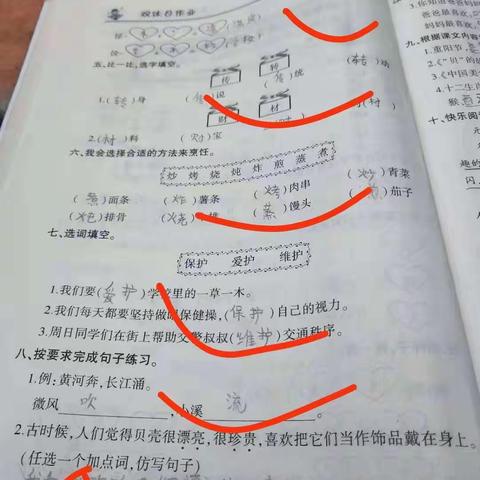 双休日作业
五、比一比,选字填空。
传 转
1.(转)身 (传)说 (传)统 (转)动
财 材
2.(材)料 (财)宝 (材)
六、我会选择合适的方法来烹饪。
炒 烤 烧 炖 炸 煎 蒸 煮
(煮)面条 (炸)薯条 (烤)肉串 (炒)青菜
排骨 (烧) 排 (蒸)馒头 茄子
七、选词填空。
保护 爱护 维护
1.我们要(爱护)学校里的一草一木。
2.我们每天都要坚持做眼保健操,(保护)自己的视力。
3.周日同学们在街上帮助交警叔叔(维护)交通秩序。
八、按要求完成句子练习。
1.例:黄河奔,长江涌。
微风 吹 ,小溪 流 。
2.古时候,人们觉得贝壳很漂亮,很珍贵,喜欢把它们当作饰品戴在身上。
(任选一个加点词,仿写句子)
3.你知道爸爸妈妈
爸爸最喜欢
妈妈最喜欢
九、根据课文内容
1.重阳节,
2.“贝”的
3.《中国美
4.十二生肖
猴
十、快乐阅读
趣的
闪,